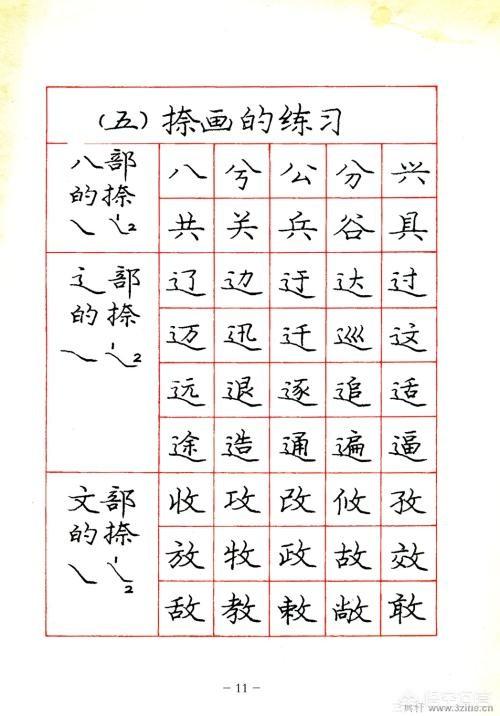 （五）捺画的练习
八部
的捺
1 2
八 兮 公 分 兴
共 关 兵 谷 具
辶部
的捺
1 2
辽 边 迂 达 过
迈 迅 迁 巡 这
远 退 逐 追 适
途 造 通 遍 逼
文部
的捺
1 2
收 攻 改 攸 孜
放 牧 政 故 效
敌 教 敕 敞 敢
- 11 -
www.3zine.com